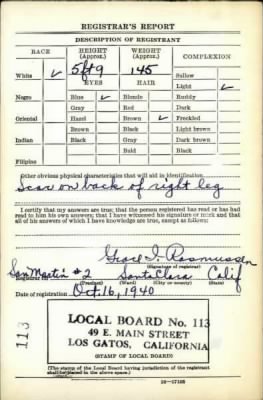 REGISTRAR'S REPORT
DESCRIPTION OF REGISTRANT
RACE HEIGHT (Approx.) WEIGHT (Approx.) COMPLEXION
White ✓ 5ft 9 145 Sallow
EYES HAIR Light ✓
Negro Blue ✓ Blonde Ruddy
Gray Red Dark
Oriental Hazel Brown ✓ Freckled
Brown Black Light brown
Indian Black Gray Dark brown
Bald Black
Filipino
Other obvious physical characteristics that will aid in identification
Scar on back of right leg
I certify that my answers are true; that the person registered has read or has had
read to him his own answers; that I have witnessed his signature or mark and that
all of his answers of which I have knowledge are true, except as follows:
Grace I. Rasmussen
(Signature of registrar)
Registrar for San Martin #2 Santa Clara Calif
(Precinct) (Ward) (City or county) (State)
Date of registration Oct. 16, 1940
113
LOCAL BOARD No. 113
49 E. MAIN STREET
LOS GATOS, CALIFORNIA
(STAMP OF LOCAL BOARD)
(The stamp of the Local Board having jurisdiction of the registrant
shall be placed in the above space.)
16—17105